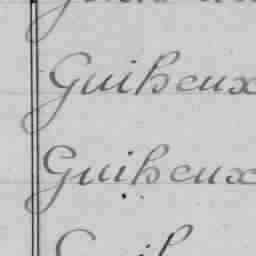 Guiheux
Guiheux